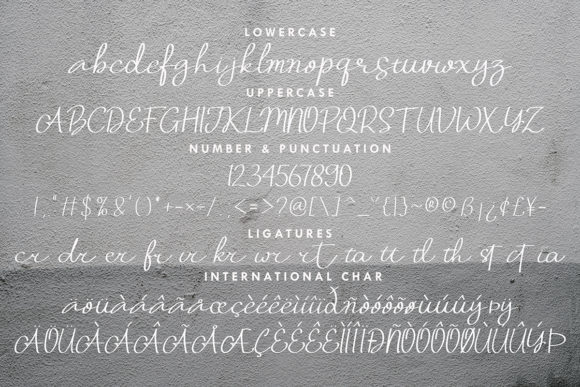 LOWERCASE
abcdefghijklmnopqrstuvwxyz
UPPERCASE
ABCDEFGHIJKLMNOPQRSTUVWXYZ
NUMBER & PUNCTUATION
1234567890
!,"#$%&'()*+-×÷/:,<=>?@[\]^_`{|}~®©ß¡¿¢£¥-
LIGATURES
cr dr er fr ir kr wr rt ta tt tl th st ct ia
INTERNATIONAL CHAR
äöüàáâãåœçèéêëìíîïðñòóôõøùúûýþÿ
ÄÖÜÀÁÂÃÅÆÇÈÉÊËÌÍÎÏÐÑÒÓÔÕØÙÚÛÝÞ